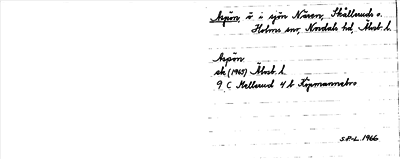 Aspön, ö. i sjön Nären, Skålleruds o.
Holms snr, Nordals hd, Älvsb. l.
Aspön
ek. (1965) Älvsb. l.
9 C Mellerud 4 b Köpmannebro
S.P-L. 1966